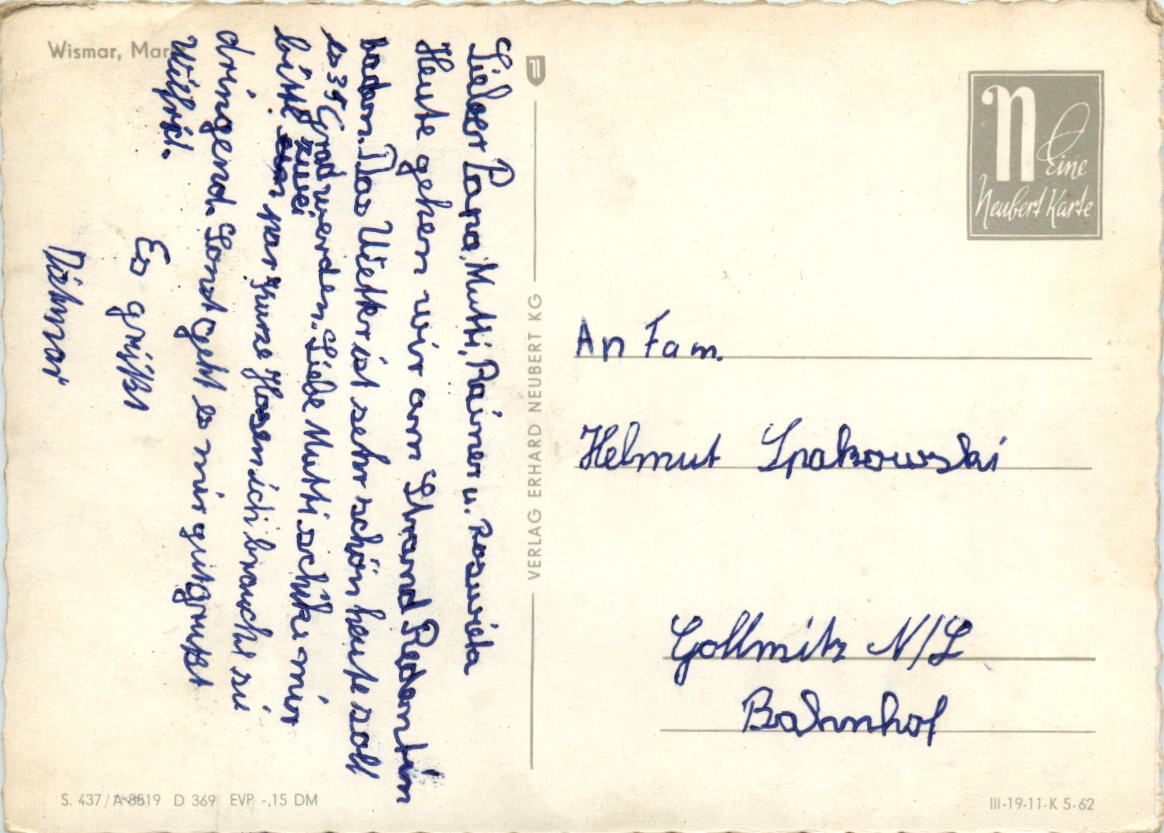 Wismar, Mar
Lieber Papa, Mutti, Rainer u. Roswieta
Heute gehen wir am Strand Redentin
baden. Das Wetter ist sehr schön heute soll
es 34 Grad werden. Liebe Mutti schike mir
bitte zwei par kurze Hosen ich brauche sie
dringend. Sonst geht es mir gut grußt
Wilfrid.
Es grüßt
Dietmar
VERLAG ERHARD NEUBERT KG
n Eine
Neubert Karte
An Fam.
Helmut Spakowski
Gollmitz N/L
Bahnhof
S. 437/A 8519 D 369 EVP -,15 DM
III-19-11-K 5-62